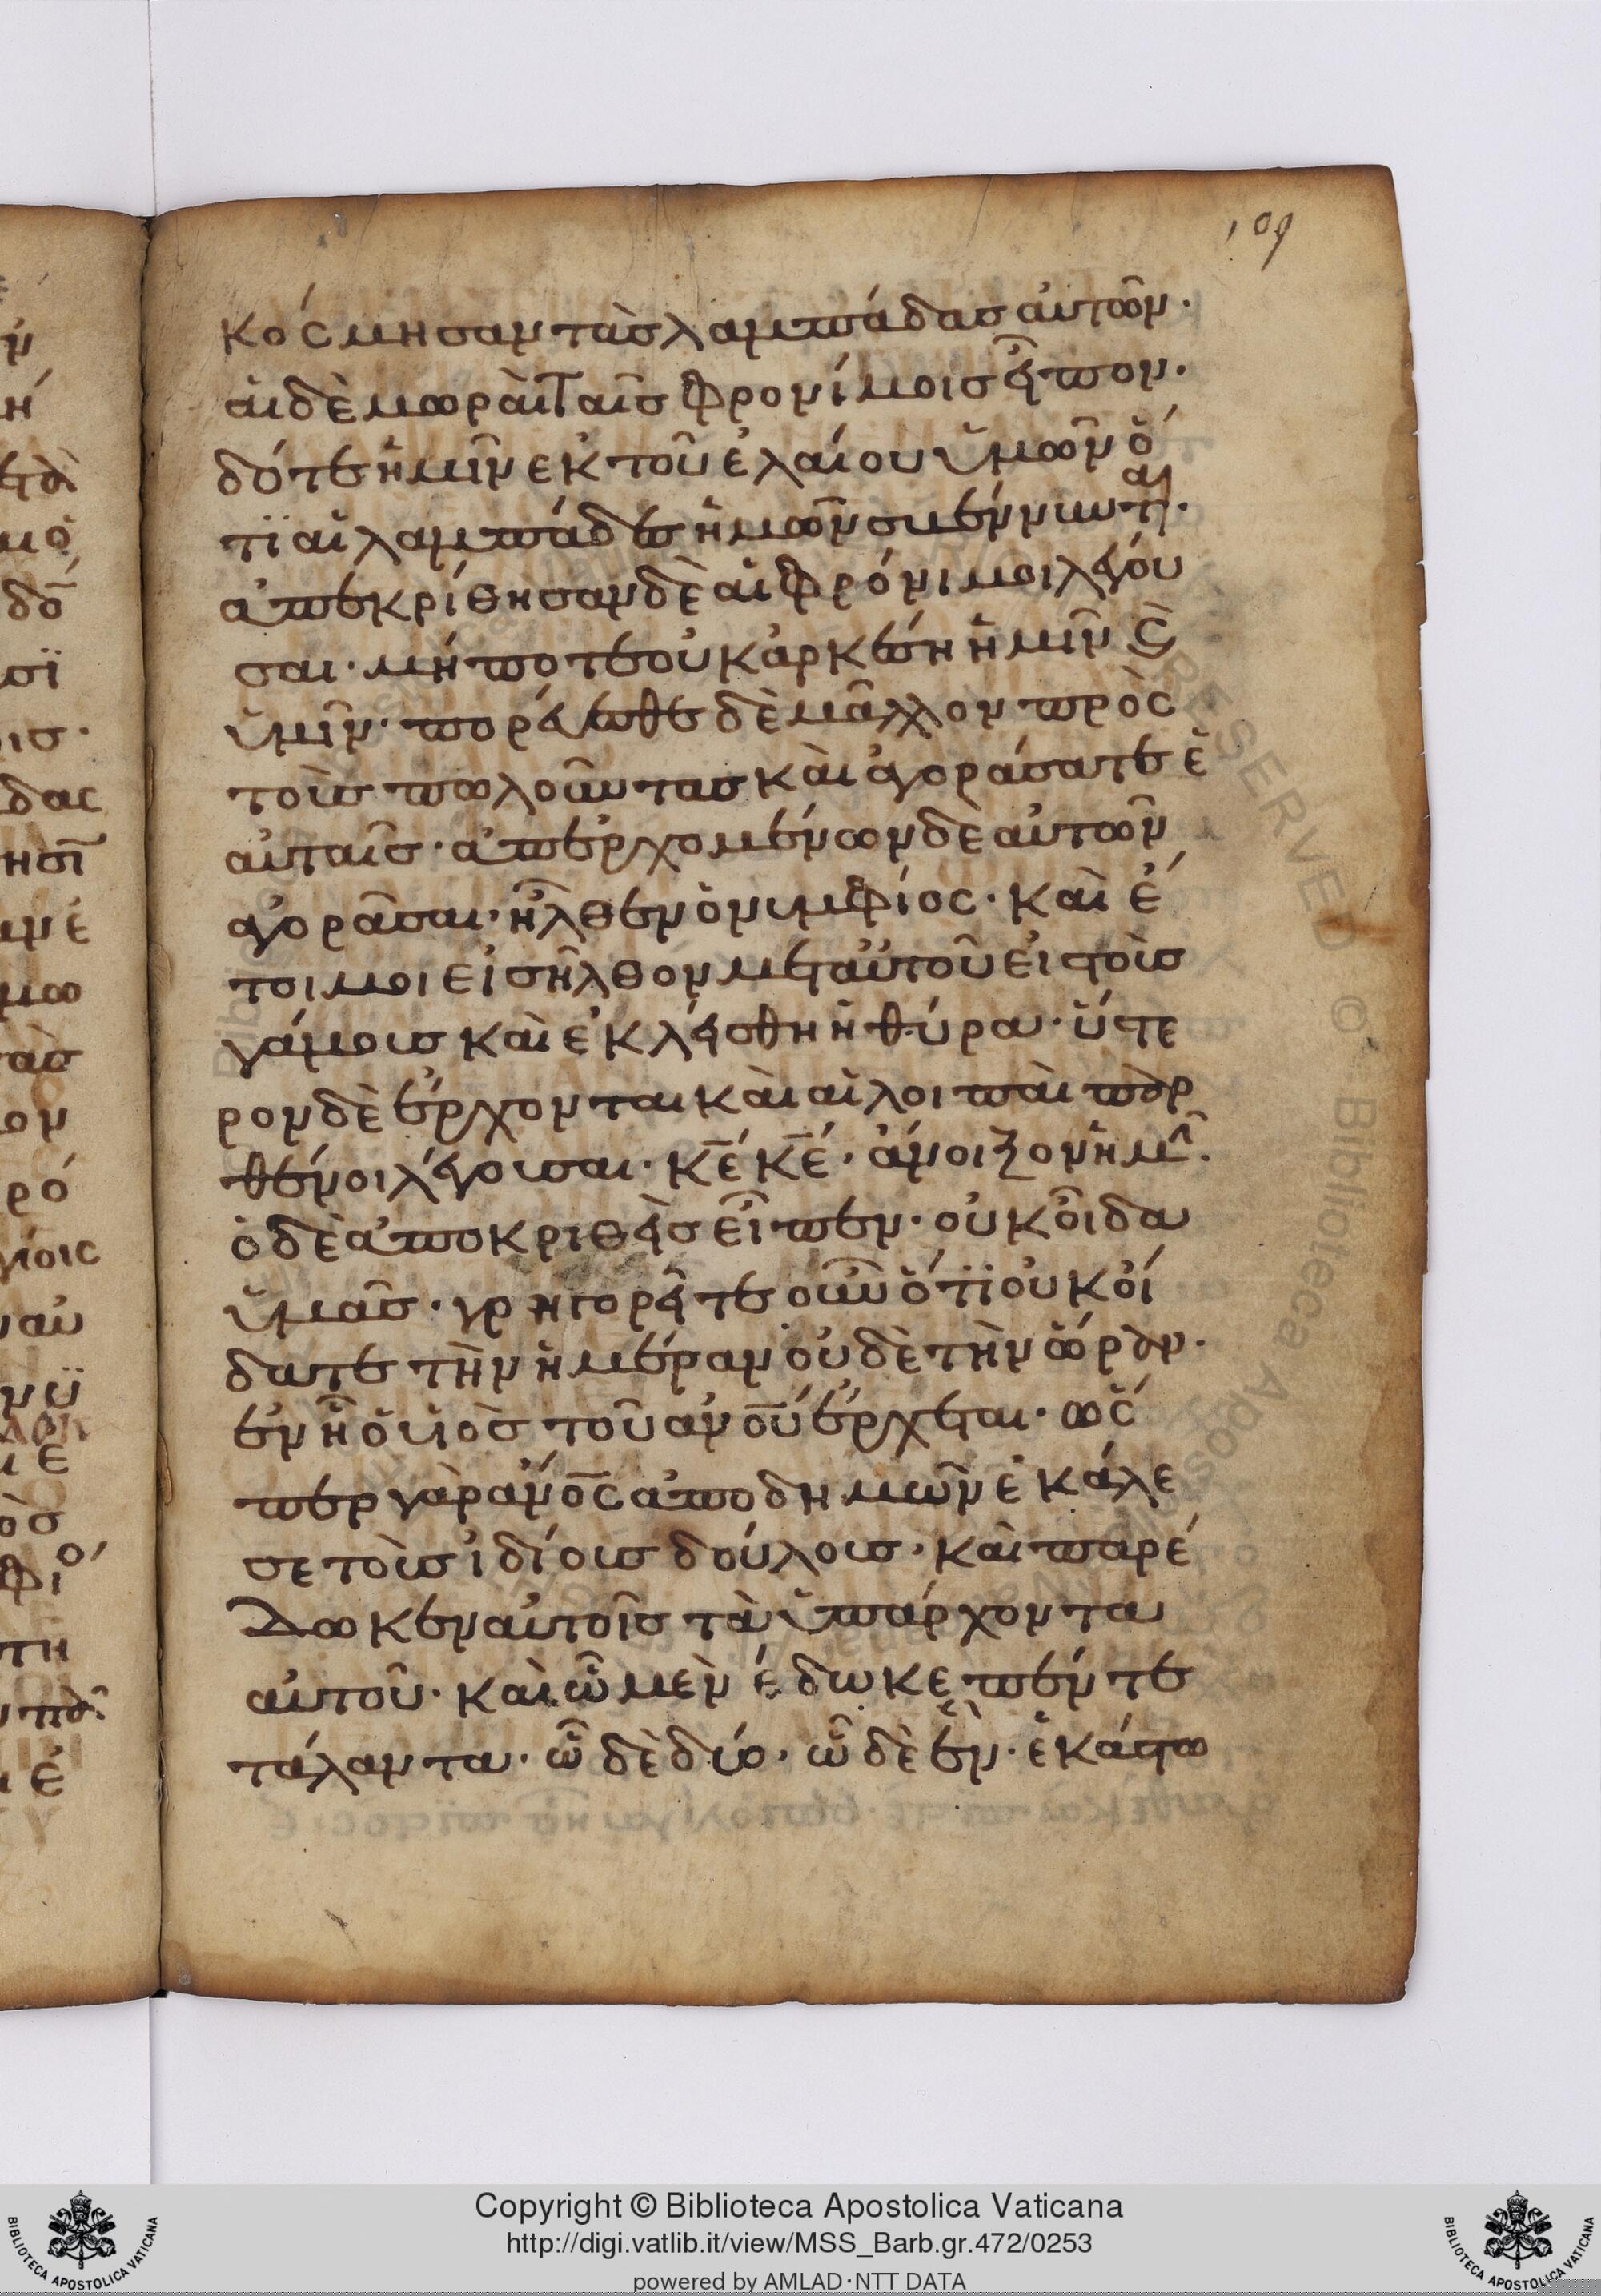 109
κόσμησαν τὰς λαμπάδας αὐτῶν·
αἱ δὲ μωραὶ ταῖς φρονίμοις εἶπον·
δότε ἡμῖν ἐκ τοῦ ἐλαίου ὑμῶν ὅ
τϊ αἱ λαμπάδες ἡμῶν σβέννυνται·
ἀπεκρίθησαν δὲ αἱ φρόνιμοι λέγου
σαι· μήποτε οὐκ ἀρκέση ἡμῖν ϗ
ὑμῖν· πορεύεσθε δὲ μᾶλλον πρὸς
τοὺς πωλοῦντας καὶ ἀγοράσατε ἑ
αὐταῖς· ἀπερχομένων δὲ αὐτῶν
ἀγορᾶσαι· ἦλθεν ὁ νυμφίος· καὶ ἕ
τοιμοι εἰσῆλθον μετ αὐτοῦ εἰς τοὺς
γάμους καὶ ἐκλείσθη ἡ θύρα· ὕστε
ρον δὲ ἔρχονται καὶ αἱ λοιπαὶ παρ
θένοι λέγουσαι· κ̅ε̅ κ̅ε̅· ἄνοιξον ἡμῖν·
ὁ δὲ ἀποκριθεὶς εἶπεν· οὐκ οἶδα
ὑμᾶς· γρηγορεῖτε οὖν ὅτϊ οὐκ οἴ
δατε τὴν ἡμέραν οὐδὲ τὴν ὥραν·
ἐν ἧ ὁ υἱὸς τοῦ α̅ν̅ο̅υ̅ ἔρχεται· ὥσ
περ γὰρ α̅ν̅ο̅ς̅ ἀποδημῶν ἐκάλε
σε τοὺς ἰδίους δούλους· καὶ παρέ
δωκεν αὐτοῖς τὰ ὑπάρχοντα
αὐτοῦ· καὶ ὧ μὲν ἔδωκε πέντε
τάλαντα· ὧ δὲ δύο· ὧ δὲ ἕν· ἑκάστω
Copyright © Biblioteca Apostolica Vaticana
http://digi.vatlib.it/view/MSS_Barb.gr.472/0253
powered by AMLAD·NTT DATA
BIBLIOTECA APOSTOLICA VATICANA
BIBLIOTECA APOSTOLICA VATICANA